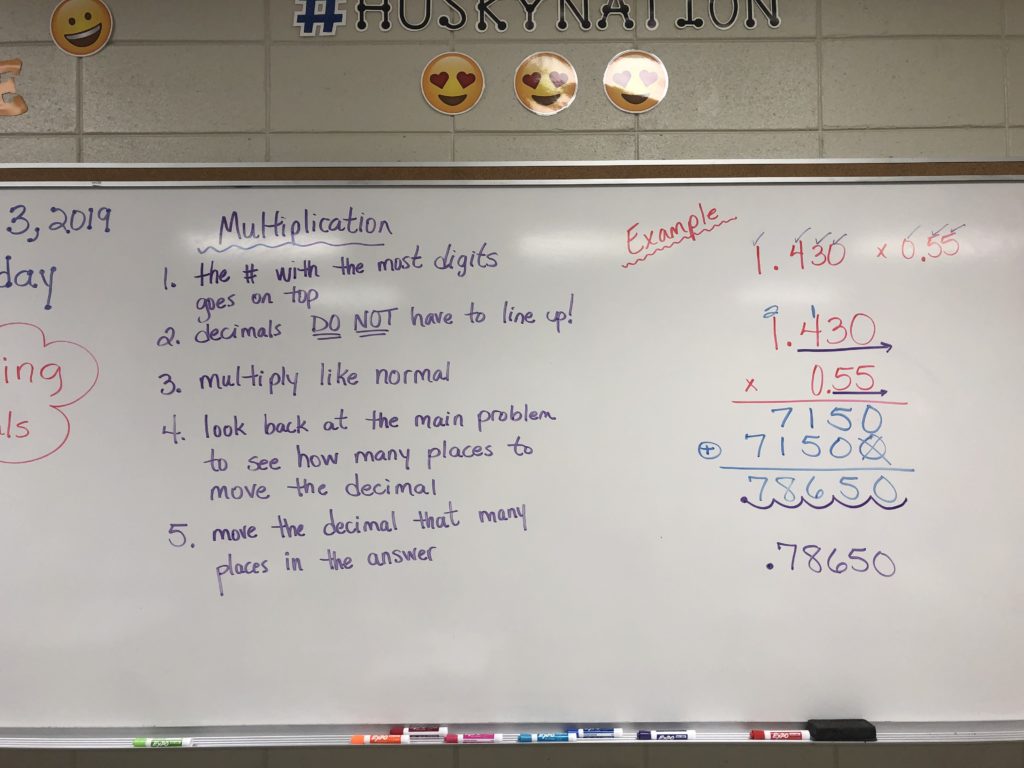 #HUSKYNATION
E
3, 2019
day
ing
ls
Multiplication
1. the # with the most digits
goes on top
2. decimals DO NOT have to line up!
3. multiply like normal
4. look back at the main problem
to see how many places to
move the decimal
5. move the decimal that many
places in the answer
Example
1.430 x 0.55
2 1
1.430
x 0.55
7150
+ 71500
.78650
.78650
EXPO
EXPO
EXPO
EXPO
EXPO
EXPO